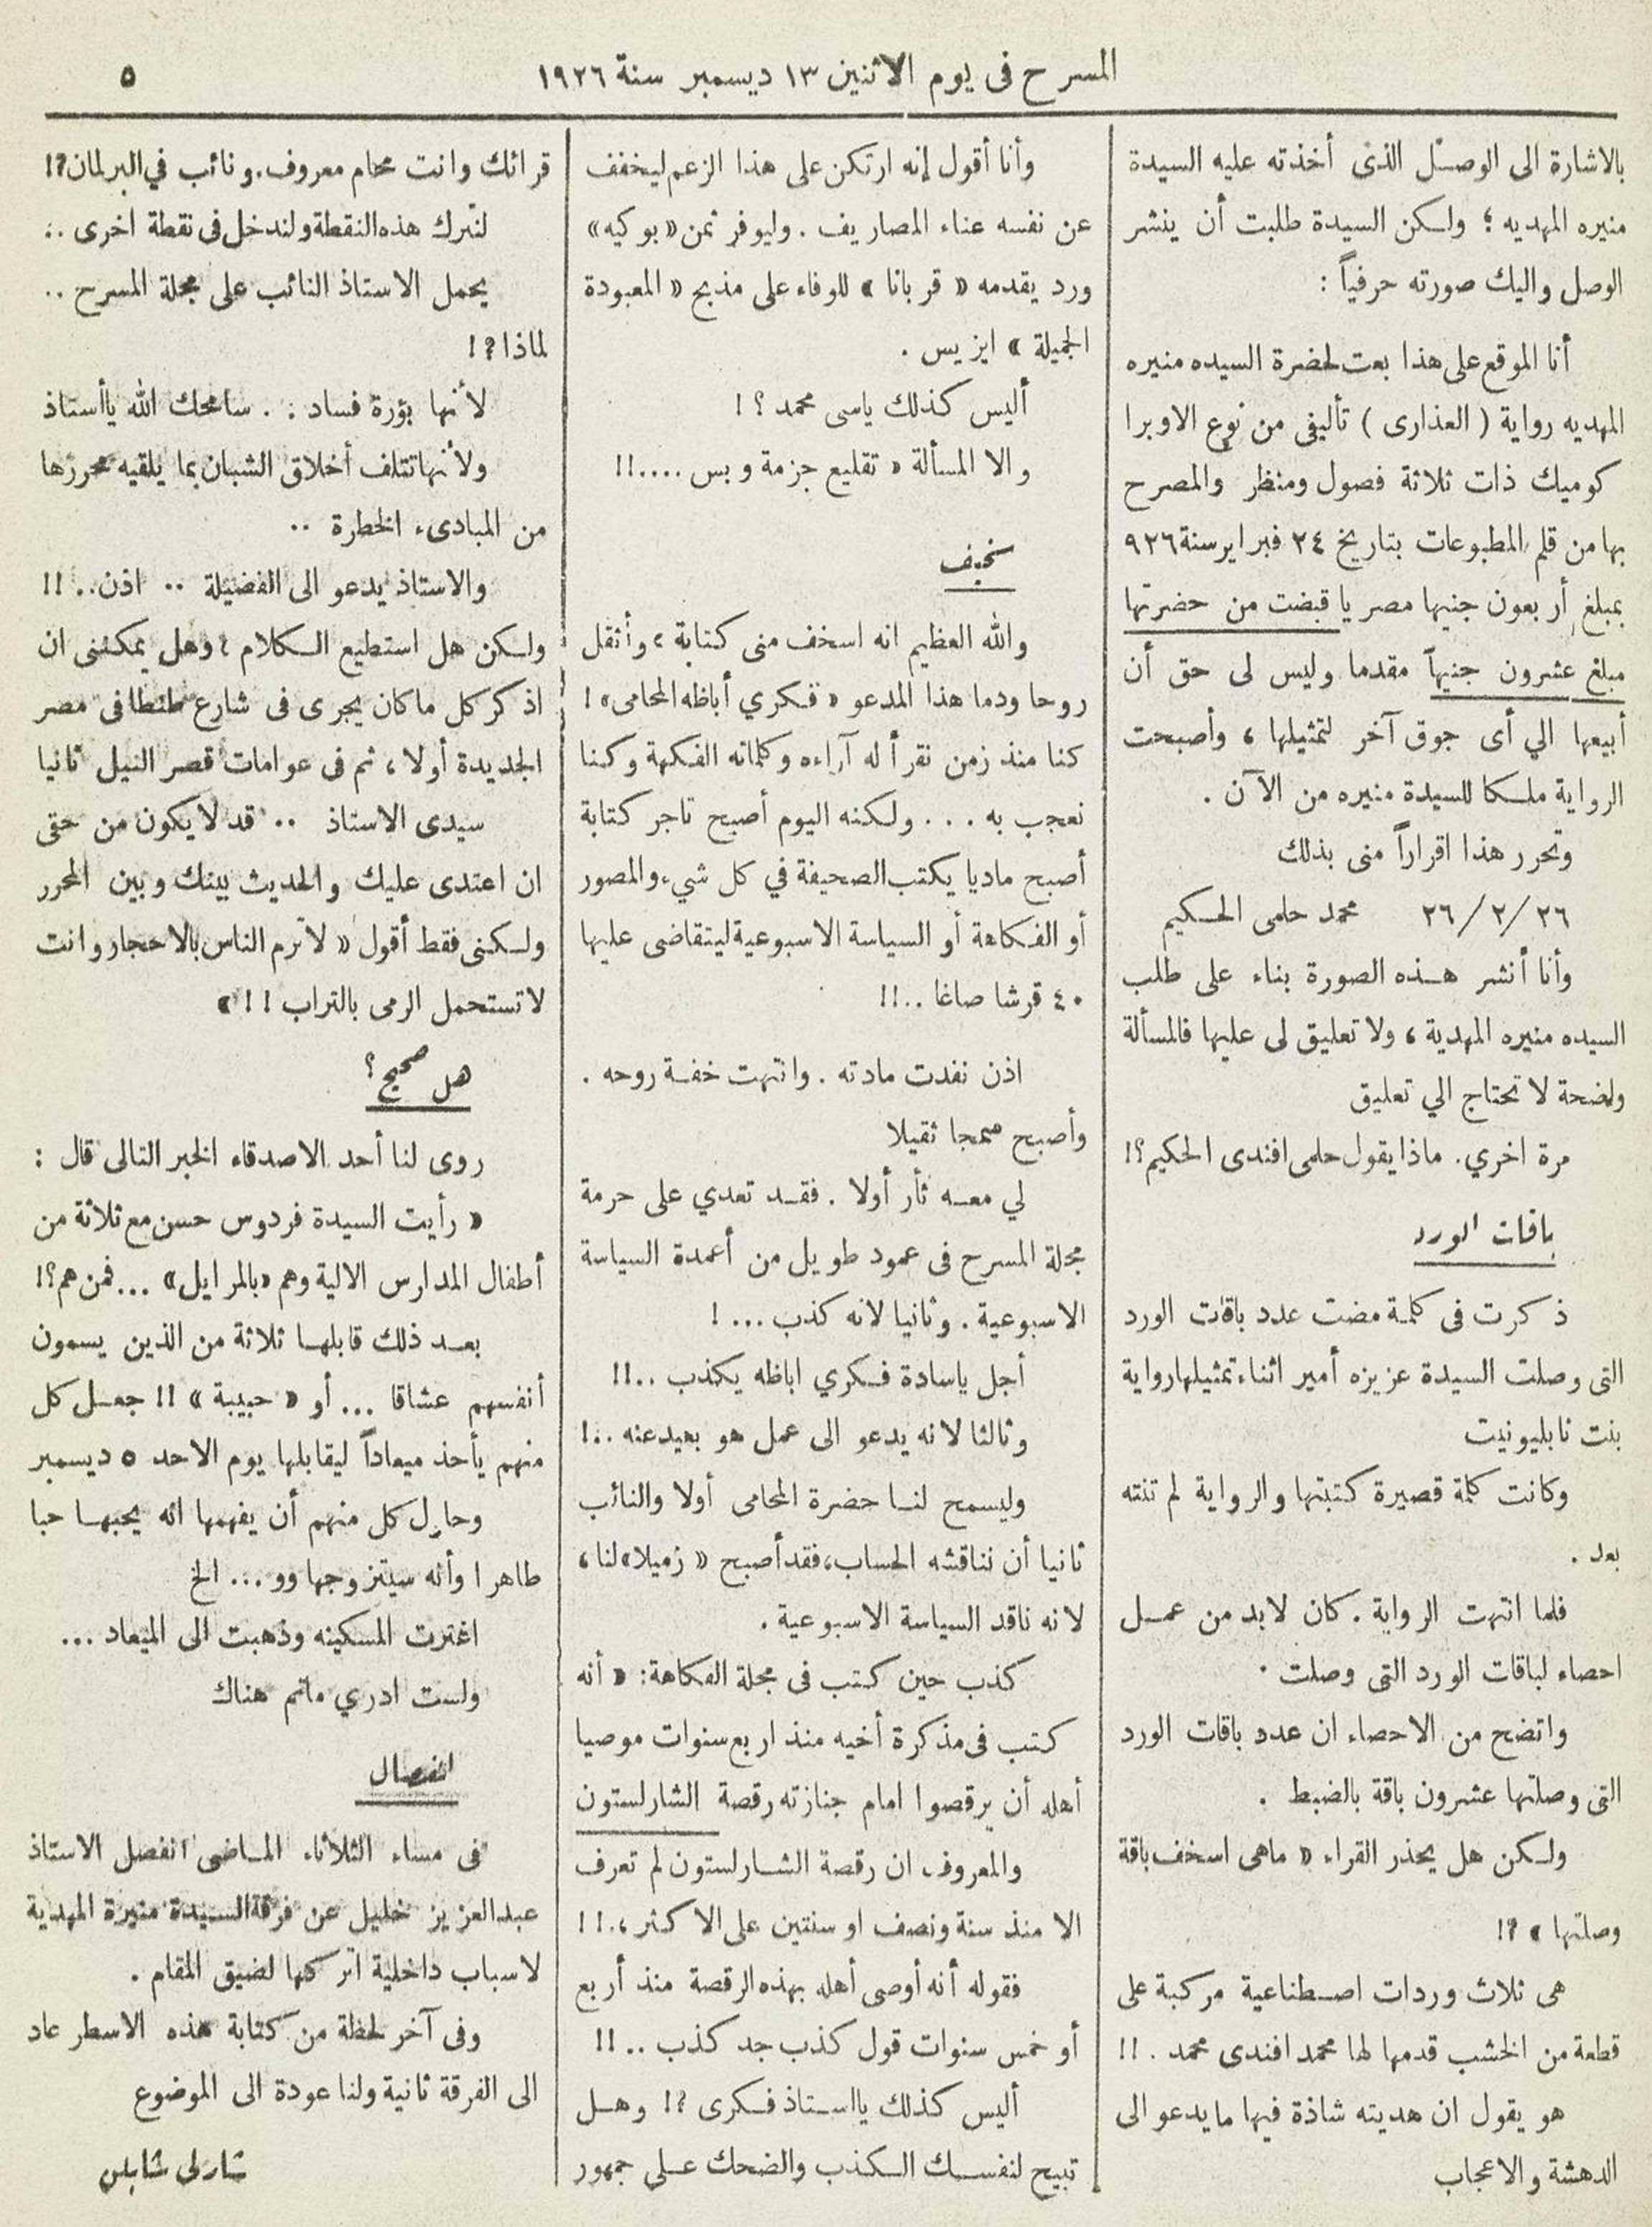 المسرح فى يوم الاثنين ١٣ ديسمبر سنة ١٩٢٦
٥
بالاشارة الى الوصل الذى أخذته عليه السيدة
منيره المهديه ؛ ولكن السيدة طلبت أن ينشر
الوصل واليك صورته حرفياً :
أنا الموقع على هذا بعت لحضرة السيده منيره
المهديه رواية ( العذارى ) تأليفى من نوع الاوبرا
كوميك ذات ثلاثة فصول ومنظر والمصرح
بها من قلم المطبوعات بتاريخ ٢٤ فبراير سنة ٩٢٦
بمبلغ أربعون جنيها مصريا قبضت من حضرتها
مبلغ عشرون جنيهاً مقدما وليس لى حق أن
أبيعها الي أى جوق آخر لتمثيلها ، وأصبحت
الرواية ملكا للسيدة منيره من الآن .
وتحرر هذا اقراراً منى بذلك
٢٦/٢/٢٦ محمد حلمى الحكيم
وأنا أنشر هذه الصورة بناء على طلب
السيده منيره المهدية ، ولا تعليق لى عليها فالمسألة
واضحة لا تحتاج الي تعليق
مرة اخري . ماذا يقول حلمى افندى الحكيم ؟!
باقات الورد
ذكرت فى كلمة مضت عدد باقات الورد
التى وصلت السيدة عزيزه أمير اثناء تمثيلها رواية
بنت نابليونيت
وكانت كلمة قصيرة كتبتها والرواية لم تنته
بعد .
فلما انتهت الرواية . كان لابد من عمل
احصاء لباقات الورد التى وصلت .
واتضح من الاحصاء ان عدد باقات الورد
التى وصلتها عشرون باقة بالضبط .
ولكن هل يحذر القراء « ماهى اسخف باقة
وصلتها » ؟!
هى ثلاث وردات اصطناعية مركبة على
قطعة من الخشب قدمها لها محمد افندى محمد . !!
هو يقول ان هديته شاذة فيها ما يدعو الى
الدهشة والاعجاب
وأنا أقول إنه ارتكن على هذا الزعم ليخفف
عن نفسه عناء المصاريف . وليوفر ثمن « بوكيه »
ورد يقدمه « قربانا » للوفاء على مذبح « المعبودة
الجميلة » ايزيس .
أليس كذلك ياسى محمد ؟ !
والا المسألة « تقليع جزمة وبس ....!!
سخيف
والله العظيم انه اسخف منى كتابة ، وأثقل
روحا ودما هذا المدعو « فكري أباظه المحامى » !
كنا منذ زمن نقرأ له آراءه وكلماته الفكهة وكنا
نعجب به ... ولكنه اليوم أصبح تاجر كتابة
أصبح ماديا يكتب الصحيفة في كل شيء والمصور
أو الفكاهة أو السياسة الاسبوعية ليتقاضى عليها
٤٠ قرشا صاغا ..!!
اذن نفدت مادته . وانتهت خفة روحه .
وأصبح سمجا ثقيلا
لي معه ثأر أولا . فقد تعدي على حرمة
مجلة المسرح فى عمود طويل من أعمدة السياسة
الاسبوعية . وثانيا لانه كذب ... !
أجل ياسادة فكري اباظه يكذب ..!!
وثالثا لانه يدعو الى عمل هو بعيد عنه ..!
وليسمح لنا حضرة المحامى أولا والنائب
ثانيا أن نناقشه الحساب ، فقد أصبح « زميلا » لنا ،
لانه ناقد السياسة الاسبوعية .
كذب حين كتب فى مجلة الفكاهة : « أنه
كتب فى مذكرة أخيه منذ اربع سنوات موصيا
أهله أن يرقصوا امام جنازته رقصة الشارلستون
والمعروف ان رقصة الشارلستون لم تعرف
الا منذ سنة ونصف او سنتين على الاكثر ..!!
فقوله أنه أوصى أهله بهذه الرقصة منذ أربع
أو خمس سنوات قول كذب جد كذب .. !!
أليس كذلك يااستاذ فكرى ؟! وهل
تبيح لنفسك الكذب والضحك على جمهور
قرائك وانت محام معروف . ونائب في البرلمان ؟!
لنترك هذه النقطة ولندخل فى نقطة اخرى ..
يحمل الاستاذ النائب على مجلة المسرح ..
لماذا ؟ !
لأنها بؤرة فساد : . سامحك الله ياأستاذ
ولأنها تتلف أخلاق الشبان بما يلقيه محررها
من المبادىء الخطرة ..
والاستاذ يدعو الى الفضيلة .. اذن .. !!
ولكن هل استطيع الكلام ؛ وهل يمكننى ان
اذكر كل ما كان يجرى فى شارع طنطا فى مصر
الجديدة أولا ، ثم فى عوامات قصر النيل ثانيا
سيدى الاستاذ .. قد لا يكون من حقى
ان اعتدى عليك والحديث بينك وبين المحرر
ولكنى فقط أقول « لا ترم الناس بالاحجار وانت
لا تستحمل الرمى بالتراب ! ! »
هل صحيح ؟
روى لنا أحد الاصدقاء الخبر التالى قال :
« رأيت السيدة فردوس حسن مع ثلاثة من
أطفال المدارس الالية وهم « بالمرايل » ... فمن هم ؟!
بعد ذلك قابلها ثلاثة من الذين يسمون
أنفسهم عشاقا ... أو « حبيبة » !! جعل كل
منهم يأخذ ميعاداً ليقابلها يوم الاحد ٥ ديسمبر
وحاول كل منهم أن يفهمها انه يحبها حبا
طاهرا وأنه سيتزوجها وو ... الخ
اغترت المسكينه وذهبت الى الميعاد ...
ولست ادري ماتم هناك
انفصال
فى مساء الثلاثاء الماضى انفصل الاستاذ
عبد العزيز خليل عن فرقة السيدة منيرة المهدية
لاسباب داخلية اتركها لضيق المقام .
وفى آخر لحظة من كتابة هذه الاسطر عاد
الى الفرقة ثانية ولنا عودة الى الموضوع
شارلى شابلن